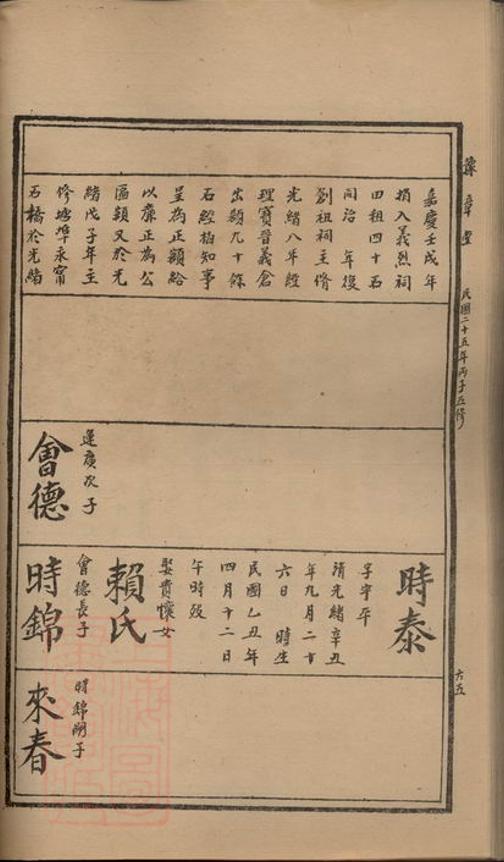 豫章堂
民國二十五年丙子五修
六五
嘉慶壬戌年
捐入義烈祠
田租四十石
同治　年復
創祖祠主脩
光緒八年經
理賓晉義倉
出穎九十餘
石經柏知事
呈為正額給
以廉正為公
匾額又於光
緒戊子年主
修塘埠永甯
石橋於光緒
蓬廣次子
會德
時泰
字宇平
清光緒辛丑
年九月二十
六日　時生
民國乙丑年
四月十二日
午時歿
娶貴懷女
賴氏
會德長子
時錦
時錦嗣子
來春